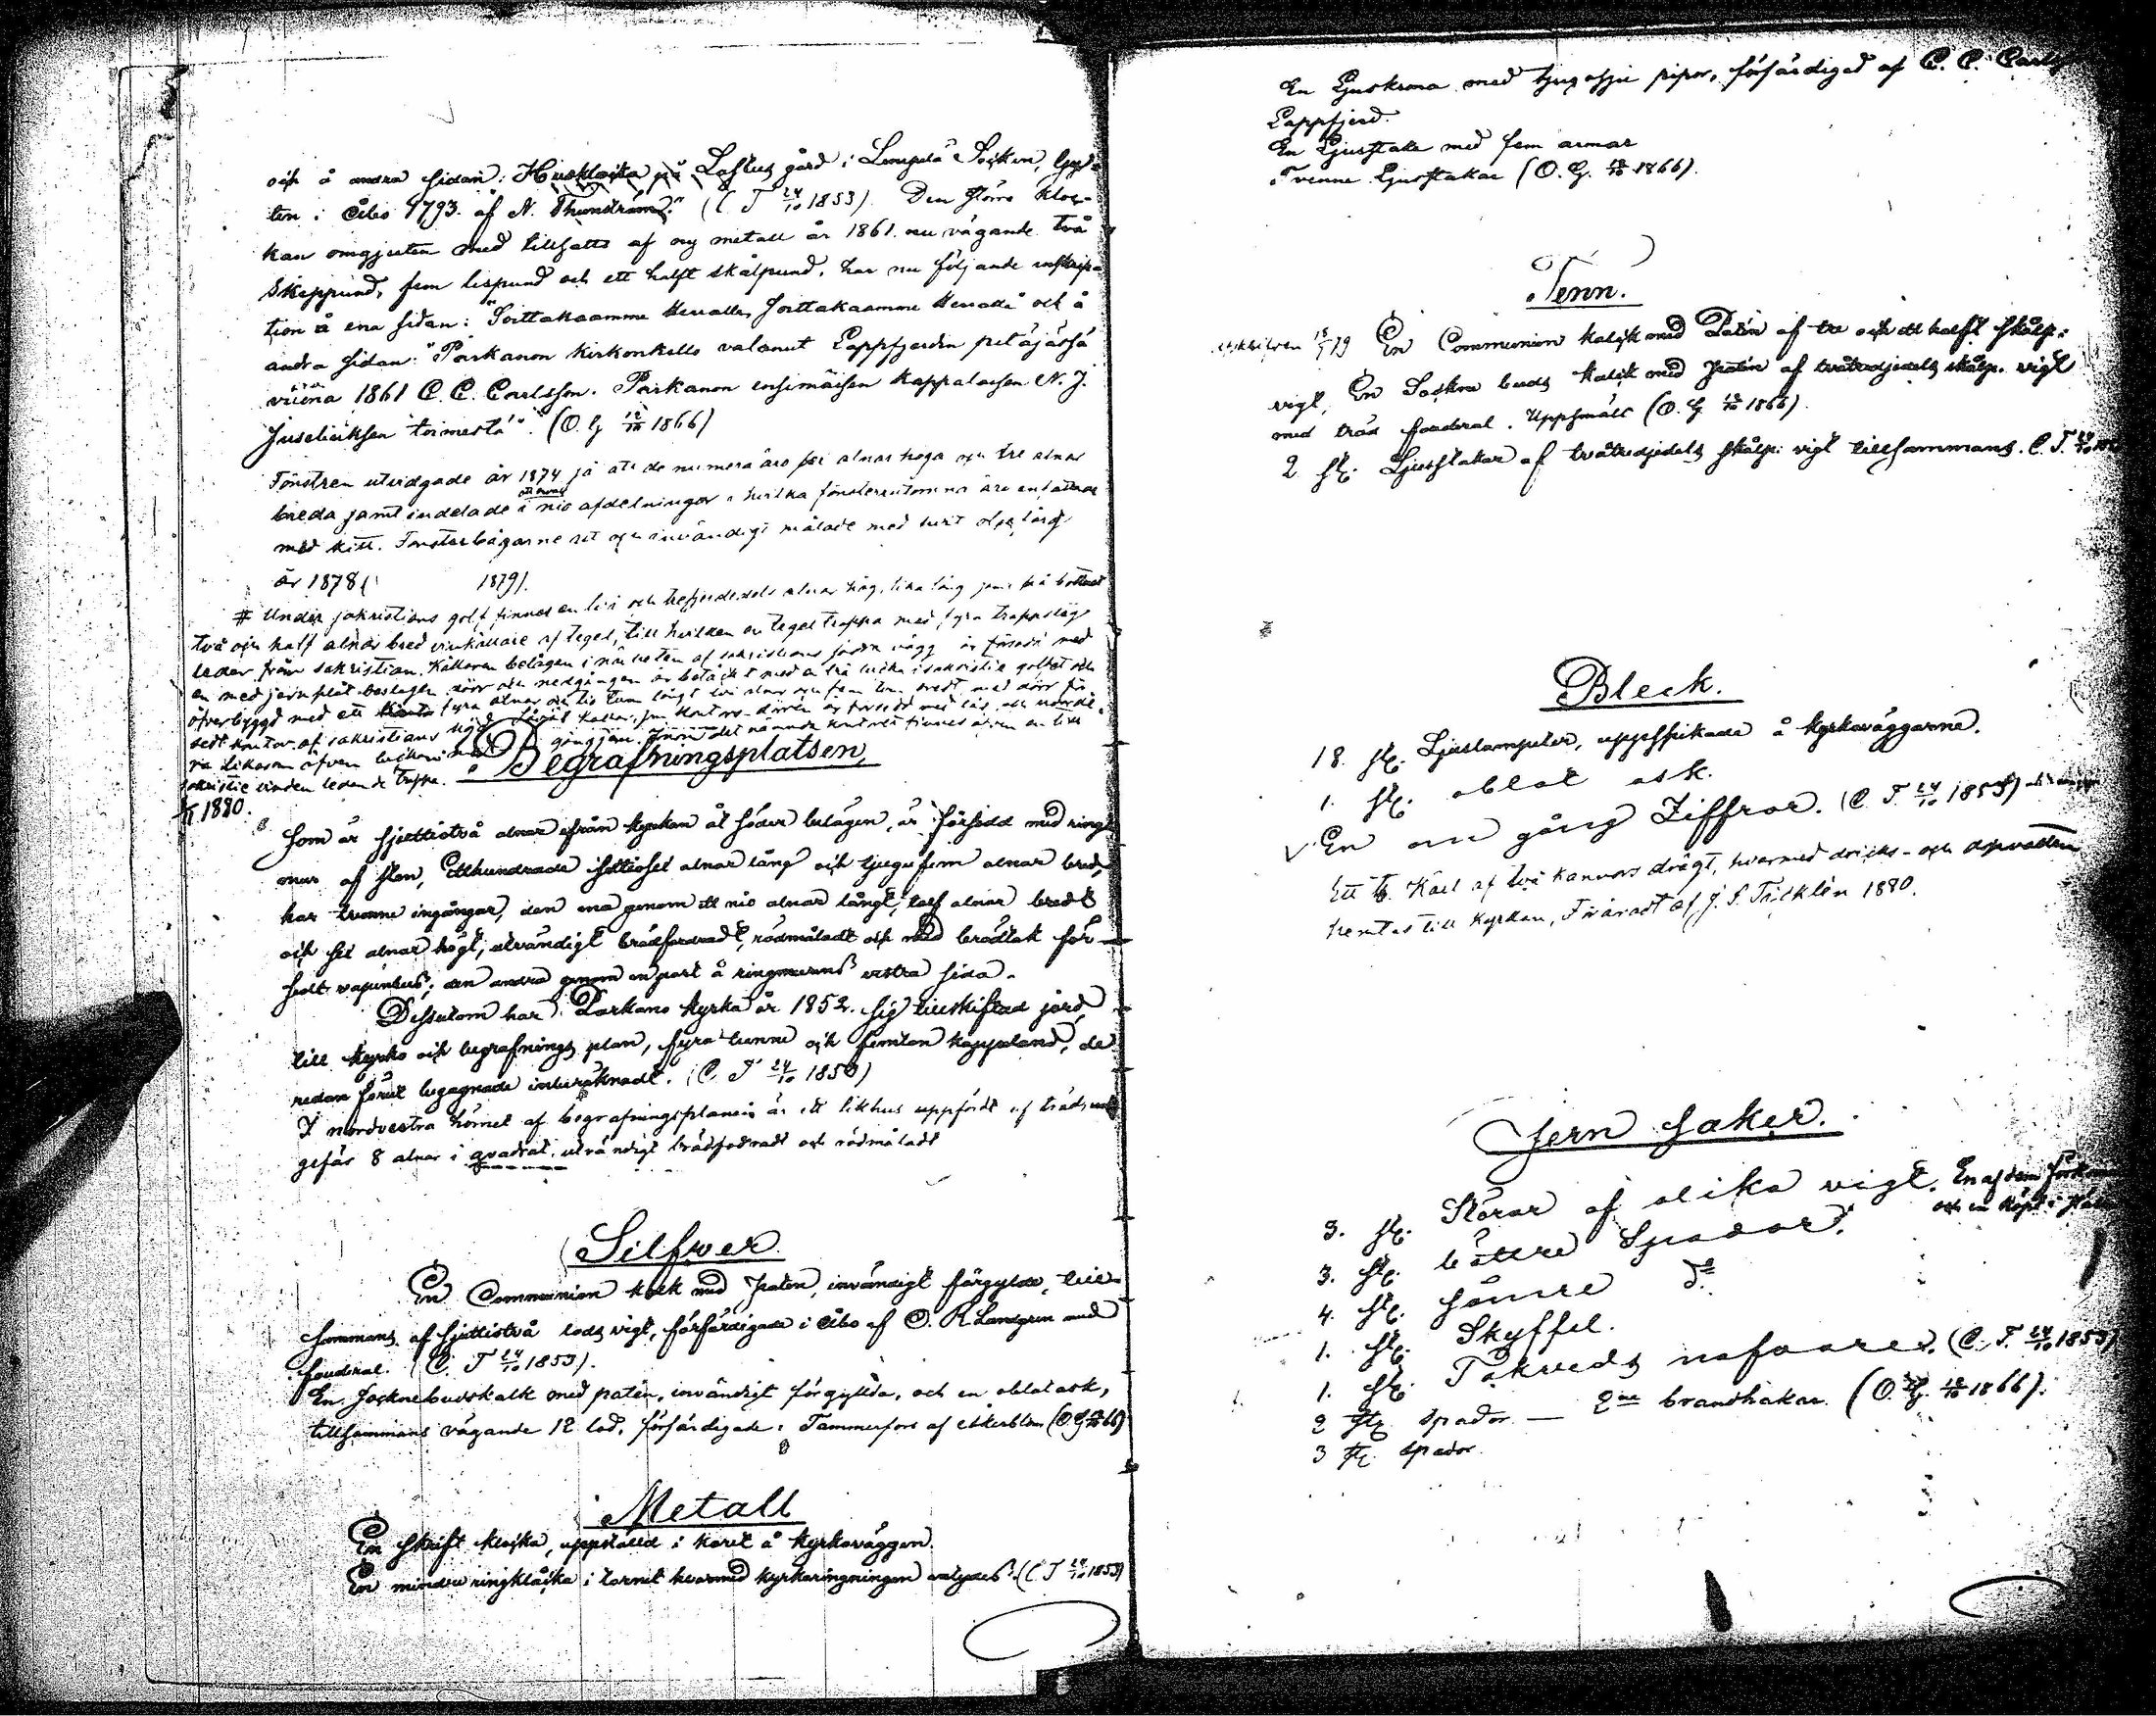 och å andra sidan: Husklocka på Laskus gård i Lempälä Socken, Guju-
ten i Åbo 1793. af N. Thunström." (C. T 24/10 1853). Den större kloc-
kan omgjuten med tillsatts af ny metall år 1861. nu vägande två
skeppund, fem lispund och ett halft skålpund, har nu följande inskrip-
tion å ena sidan: "Soittakaamme Herralle, soittakaamme Herrade" och å
andra sidan: "Parkanon kirkonkello valanut Lappfjerdin pitäjässä
vuona 1861 C. C. Carlsson. Parkanon ensimäisen Kappalaisen N. J.
toimesta". (O. G 12/10 1866)
Fönstren utvidgade år 1874 så att de numera äro alnar höga och tre alnar
breda samt indelade i nio afdelningar i hvilka fönsterrutorna äro
med kitt. Fönsterbågarne ut och invändigt målade med hvit olje färg
år 1878 ( 1879).
# Under sakristians golf finnes en och trefjerdedels alnar hög, lika lång samt på bottnen
två och half alnar bred vinkällare af tegel, till hvilken en tegel trappa med fyra trappsteg
leder från sakristian. Källaren belägen i närheten af sakristians vägg är försedd med
en med jernplåt beslagen dörr och nedgången är betäckt med en trä lucka i sakristie golfvet och
öfverbyggd med ett fyra alnar och tio tum långt två alnar och fem tum bredt med dörr för-
sedt kontor af sakristians höjd
gångjern. Inom det nämnda kontoret finnes äfven en till
sakristie vinden ledande trappa.
1880.
Begrafningsplatsen,
som är sjuttiotvå alnar ifrån kyrkan åt söder belägen, är försedd med ring
mur af sten, Etthundrade sex alnar lång och tjugufem alnar bred,
har tvenne ingångar, den ena genom ett nio alnar långt, tolf alnar bredt
och sex alnar högt, utvändigt brädfodradt, rödmåladt och med brädtak för-
sedt vapenhus; den andra genom en port å ringmurens vestra sida.
Dessutom har Parkano kyrka år 1852. sig tillskiftad jord,
till kyrko och begrafnings plan, fyra tunne och femton kappeland, de
redan förut begagnade inberäknadt. (C. T 24/10 1853)
I nordvestra hörnet af begrafningsplanen är ett likhus uppfördt af träd, un-
gefär 8 alnar i qvadrat, utvändigt brädfodradt och rödmåladt
Silfwer.
En Communion kalk med Paten, invändigt förgylda, till-
sammans af sjuttiotvå lods vigt, förfärdigade i Åbo af O. R. Lundgren med
fouderal. (C. T 24/10 1853).
En Sockne budskalk med patén, invändigt förgyllda, och en oblatask,
tillsammans vägande 12 lod, förfärdigade i Tammerfors af Åkerblom (O. G 12/10 66)
Metall
En skrift klocka, uppställd i koret å kyrkoväggen.
En mindre ringklocka i tornet hvarmed kyrkoringningen utlyses. (C T 24/10 1853)
En Ljuskrona med tjugosju pipor, förfärdigad af C. C. Carls
Lappfjerd.
En Ljusstake med fem armar
Tvenne Ljusstakar (O. G. 12/10 1866).
Tenn.
En Communion kalk med Patén af tre och ett halft skålp:
vigt, En Sockne buds kalk med patén af tvåtredjedels skålp. vigt
med träd fouderal. Uppsmält (O. G 12/10 1866).
2 st. Ljusstakar af tvåtredjedels skålp: vigt tillsammans. C. T. 24/10
Bleck.
18. st. Ljuslampetter, uppspikade å kyrkoväggarne.
1. st. oblat ask.
En om gång Ziffror. (C. T. 24/10 1853)
Ett Kärl af två kannors drägt, hvarmed dricks- och dopvatten
hemtas till kyrkan, Föräradt af J. S. Täcklén 1880.
Jern saker.
3. st. Störar af olika vigt. En af dem förkommen
och en köpt i stället
3. st. bättre Spador.
4. st. sämre do
1. st. Skyffel.
1. st. Takveds nafvare. (C. T. 24/10 1853)
2 st. spador — 2ne brandhakar. (O. G. 12/10 1866).
3 st. spador.